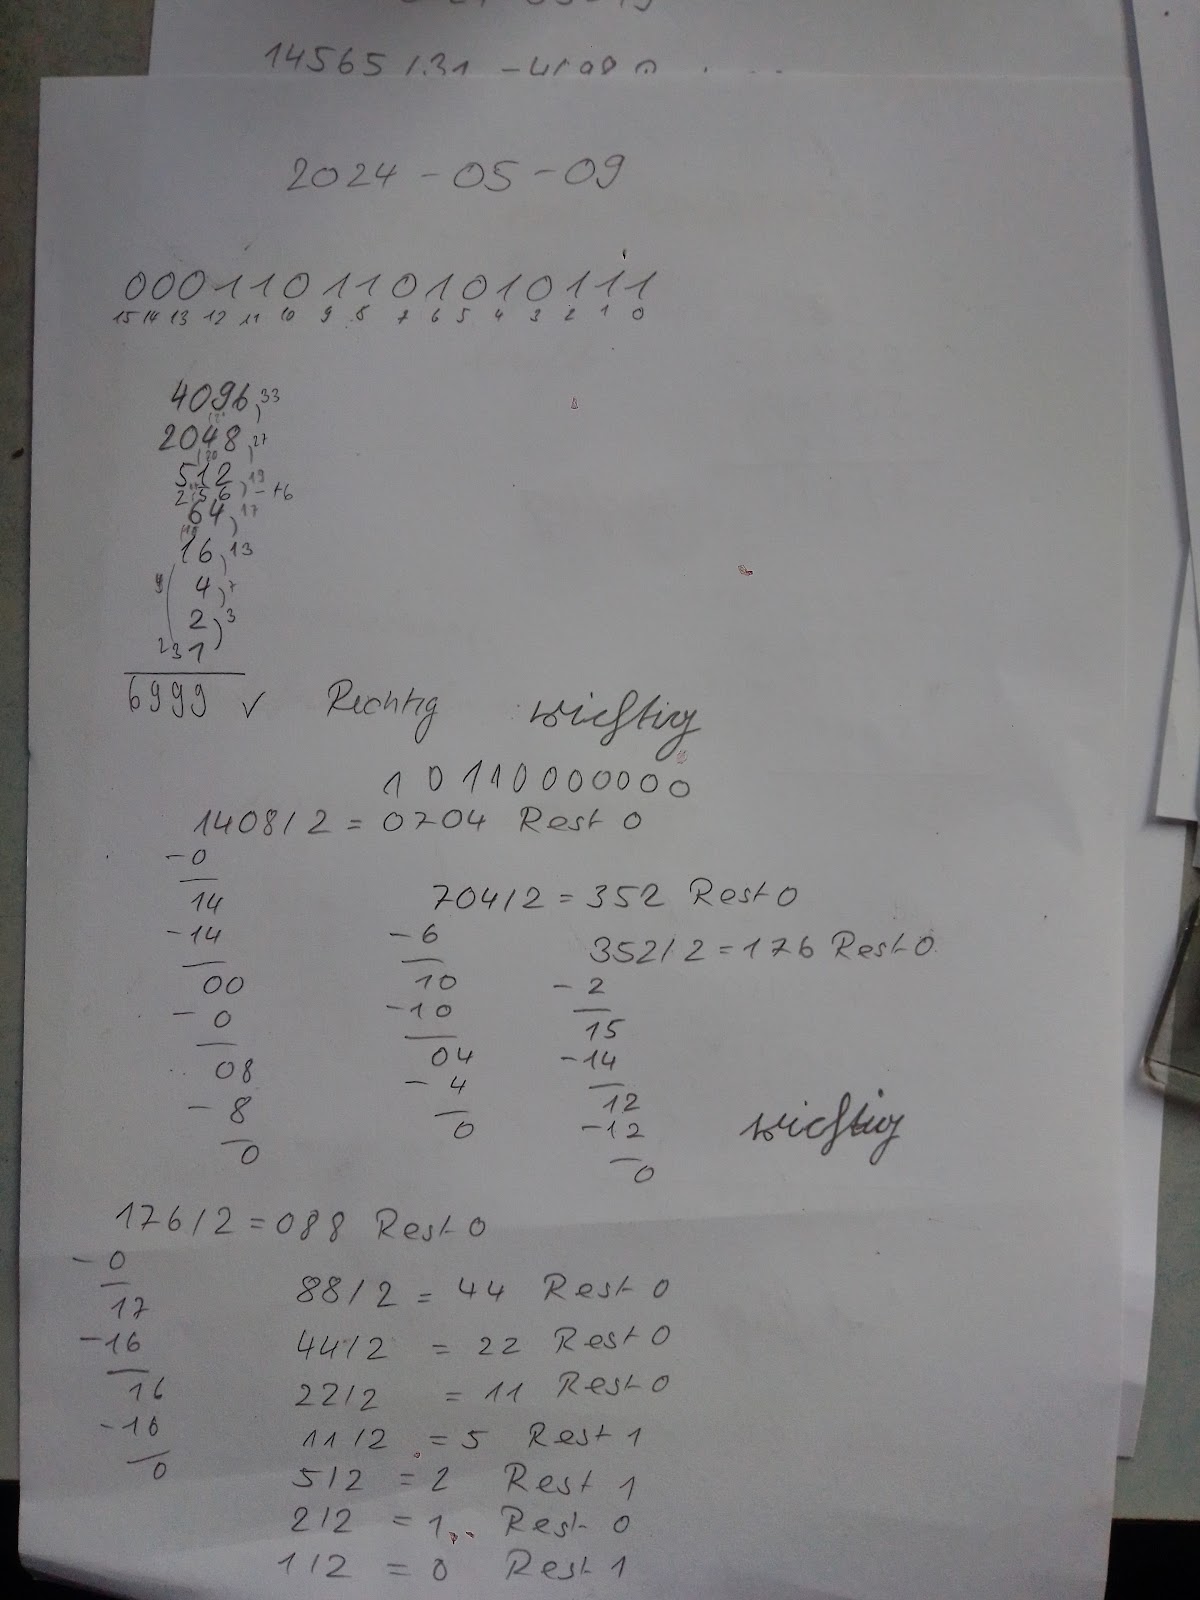 14565 / 31
2024 - 05 - 09
0001101101010111
15 14 13 12 11 10 9 8 7 6 5 4 3 2 1 0
4096 33
2048 27
512 19
256 - +6
64 17
16 13
4 7
2 3
231
6999 ✓ Richtig wichtig
10110000000
1408/2 = 0704 Rest 0
-0
14
-14
00
- 0
08
- 8
0
704/2 = 352 Rest 0
- 6
10
-10
04
- 4
0
352/2 = 176 Rest 0
- 2
15
-14
12
-12
0
wichtig
176/2 = 088 Rest 0
- 0
17
-16
16
-16
0
88/2 = 44 Rest 0
44/2 = 22 Rest 0
22/2 = 11 Rest 0
11/2 = 5 Rest 1
5/2 = 2 Rest 1
2/2 = 1 Rest 0
1/2 = 0 Rest 1